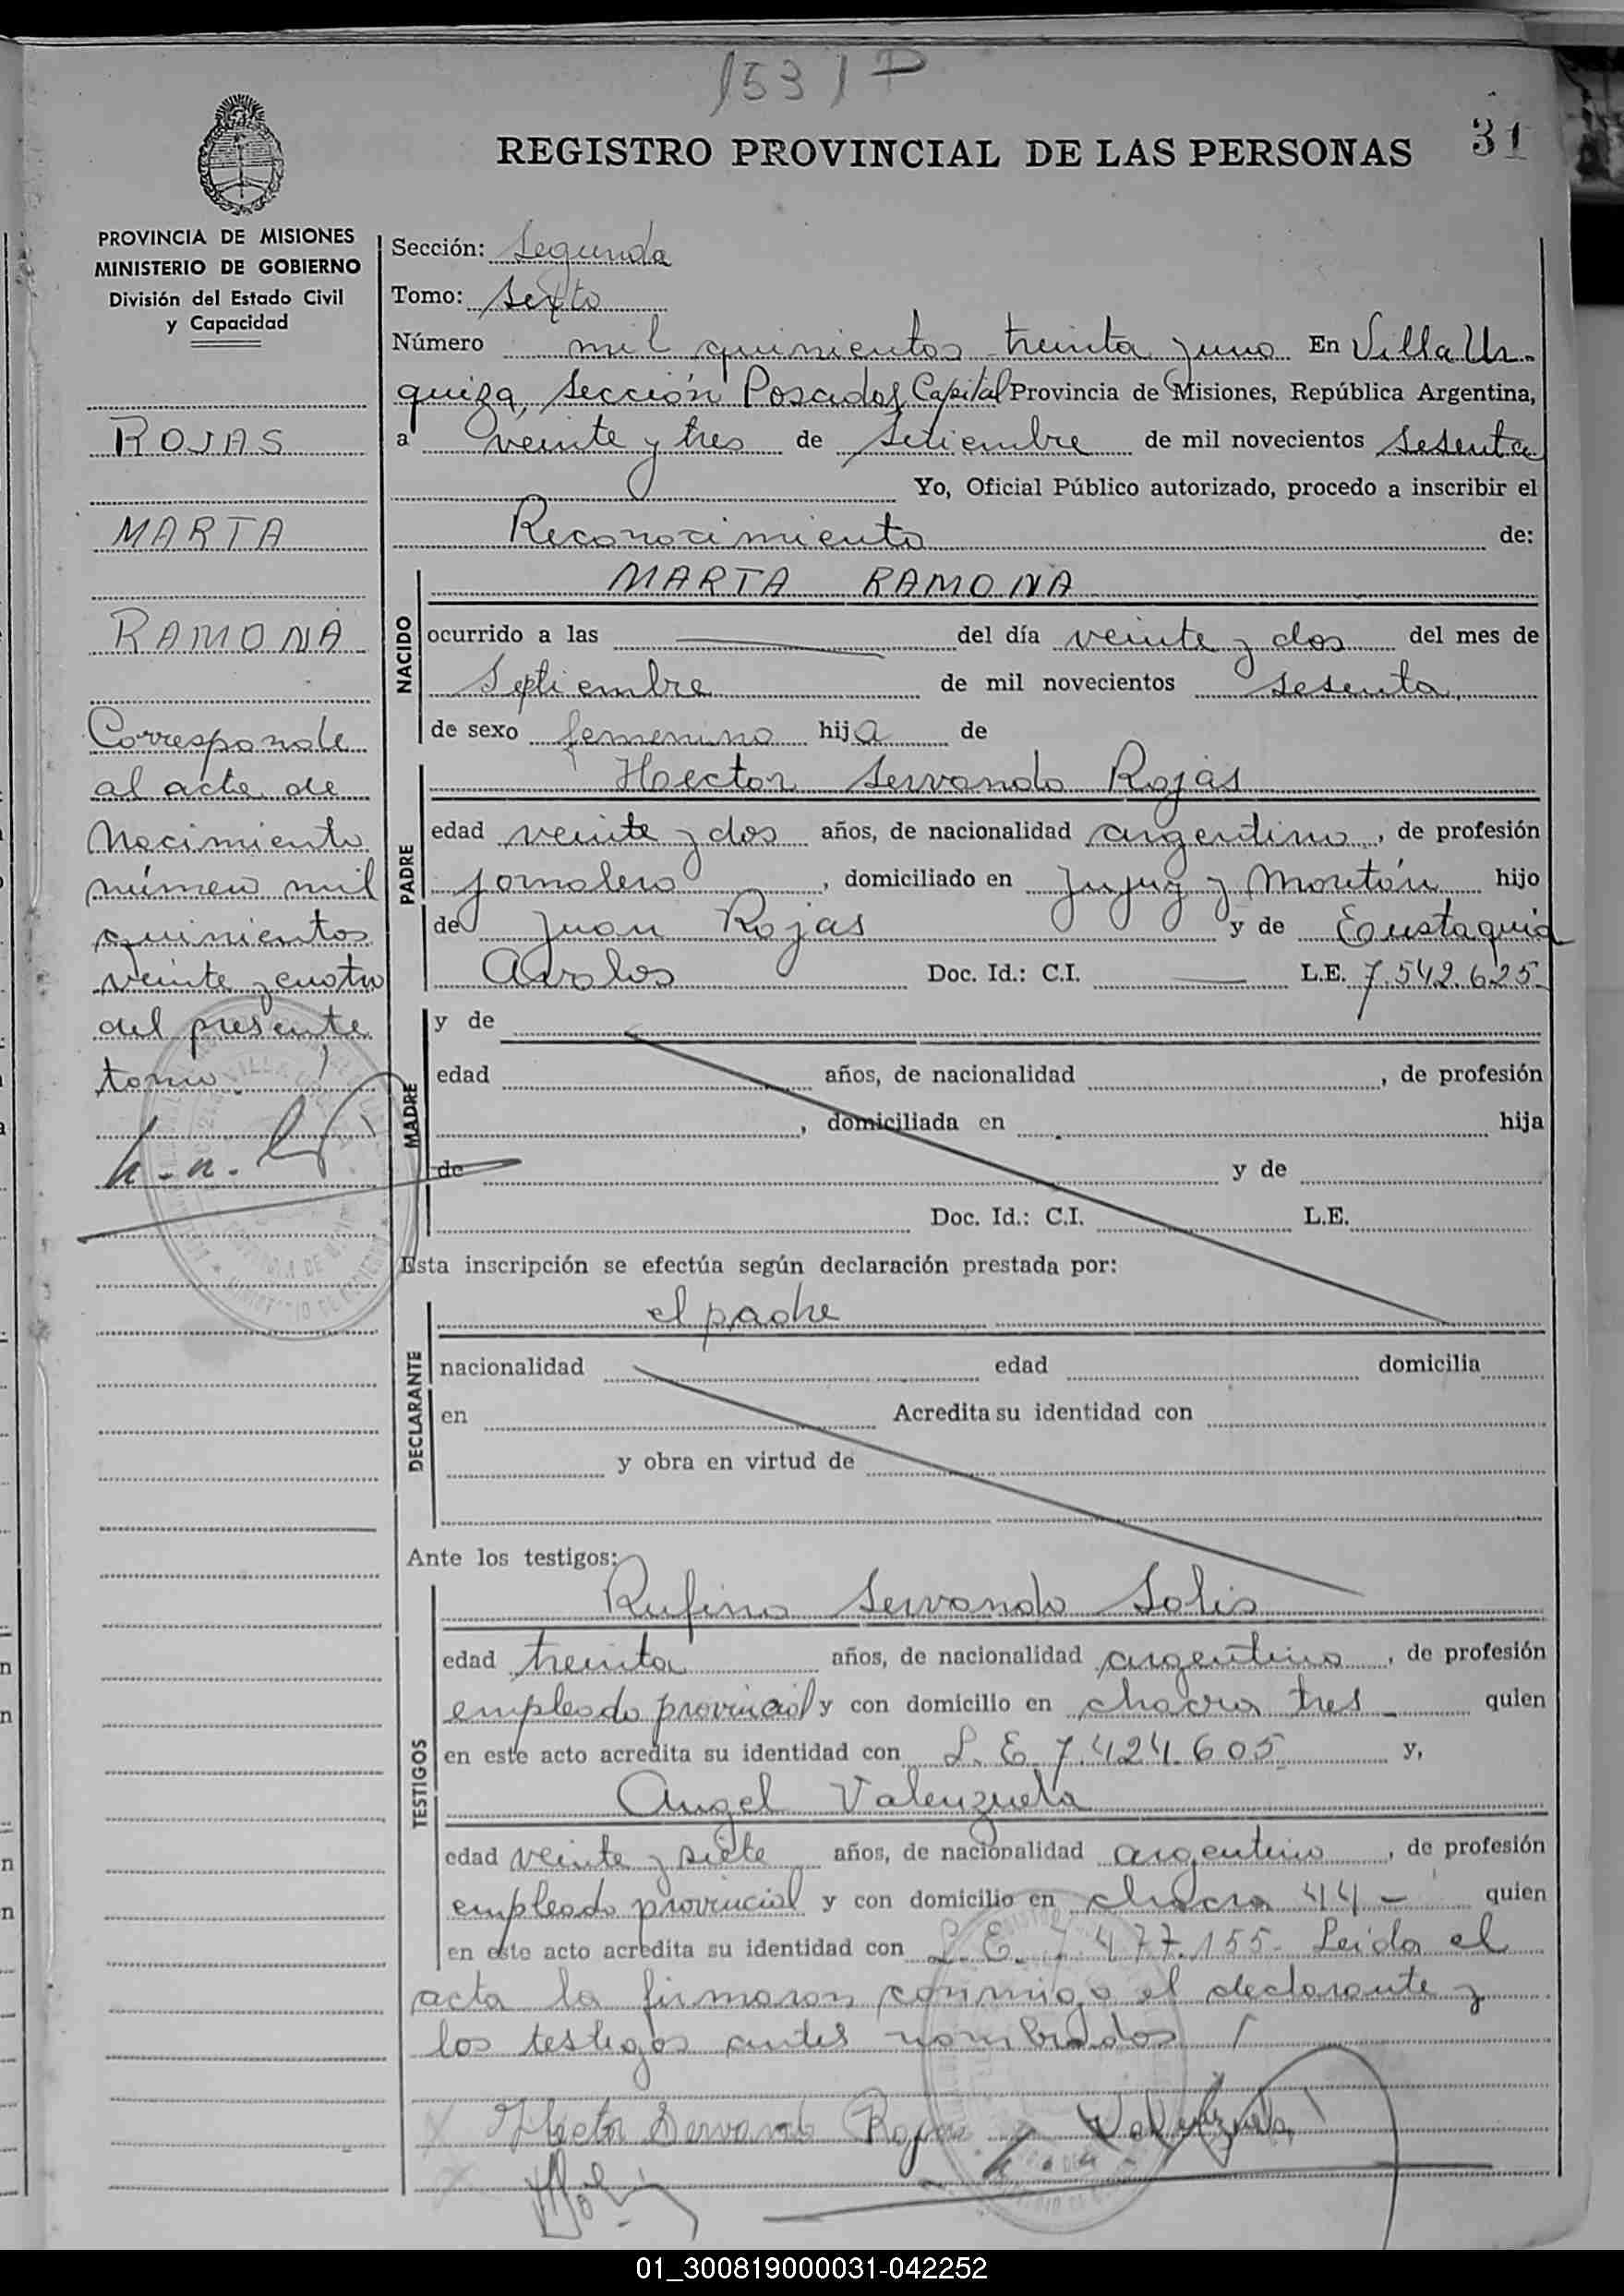 1531 P
REGISTRO PROVINCIAL DE LAS PERSONAS 31
PROVINCIA DE MISIONES
MINISTERIO DE GOBIERNO
División del Estado Civil
y Capacidad
ROJAS
MARTA
RAMONA
Corresponde
al acta de
Nacimiento
número mil
quinientos
veinte y cuatro
del presente
tomo
Sección: Segunda
Tomo: Sexto
Número mil quinientos treinta y uno En Villa Ur-
quiza, Sección Posadas Capital Provincia de Misiones, República Argentina,
a veinte y tres de Setiembre de mil novecientos sesenta
Yo, Oficial Público autorizado, procedo a inscribir el
Reconocimiento de:
NACIDO
MARTA RAMONA
ocurrido a las del día veinte y dos del mes de
Septiembre de mil novecientos sesenta
de sexo femenino hija de
PADRE
Hector Servando Rojas
edad veinte y dos años, de nacionalidad argentino, de profesión
jornalero, domiciliado en Jujuy y Montón hijo
de Juan Rojas y de Eustaquia
Avalos Doc. Id.: C.I. L.E. 7.542.625
MADRE
y de
edad años, de nacionalidad , de profesión
, domiciliada en hija
de y de
Doc. Id.: C.I. L.E.
Esta inscripción se efectúa según declaración prestada por:
DECLARANTE
el padre
nacionalidad edad domicilia
en Acredita su identidad con
y obra en virtud de
Ante los testigos:
TESTIGOS
Rufino Servando Solis
edad treinta años, de nacionalidad argentino, de profesión
empleado provincial y con domicilio en chacra tres - quien
en este acto acredita su identidad con L.E. 7.424.605 y,
Angel Valenzuela
edad veinte y siete años, de nacionalidad argentino, de profesión
empleado provincial y con domicilio en chacra 44 - quien
en este acto acredita su identidad con L.E. 7.477.155- Leida el
acta la firmaron conmigo el declarante y
los testigos antes nombrados
Hector Servando Rojas Valenzuela
01_300819000031-042252